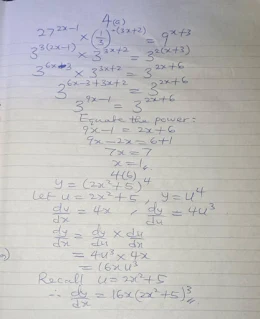 4(a)
27^(2x-1) × (1/3)^-(3x+2) = 9^(x+3)
3^(3(2x-1)) × 3^(3x+2) = 3^(2(x+3))
3^(6x-3) × 3^(3x+2) = 3^(2x+6)
3^(6x-3+3x+2) = 3^(2x+6)
3^(9x-1) = 3^(2x+6)
Equate the power:
9x-1 = 2x+6
9x-2x = 6+1
7x = 7
x = 1
4(b)
y = (2x²+5)⁴
Let u = 2x²+5, y = u⁴
dy/dx = 4x, dy/du = 4u³
dy/dx = dy/du × du/dx
= 4u³ × 4x
= 16xu³
Recall u = 2x²+5
∴ dy/dx = 16x(2x²+5)³